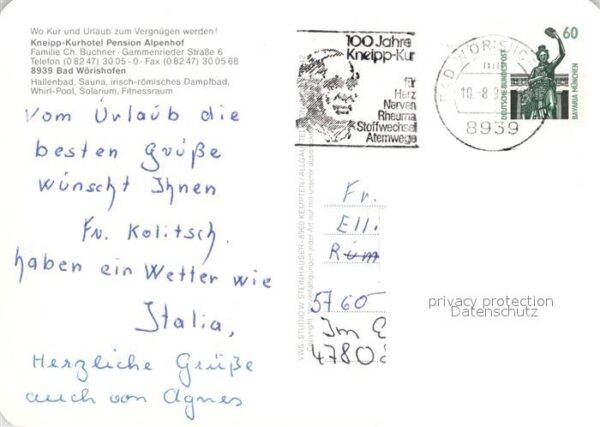 Wo Kur und Urlaub zum Vergnügen werden!
Kneipp-Kurhotel Pension Alpenhof
Familie Ch. Buchner · Gammenrieder Straße 6
Telefon (0 82 47) 30 05 - 0 · Fax (0 82 47) 30 05 68
8939 Bad Wörishofen
Hallenbad, Sauna, irisch-römisches Dampfbad,
Whirl-Pool, Solarium, Fitnessraum
Vom Urlaub die
besten Grüße
wünscht Ihnen
Fr. Kolitsch.
haben ein Wetter wie
Italia,
Herzliche Grüße
auch von Agnes
100 Jahre
Kneipp-Kur
für
Herz
Nerven
Rheuma
Stoffwechsel
Atemwege
BAD WÖRISH
10.-8.9
8939
60
DEUTSCHE BUNDESPOST
BAVARIA MÜNCHEN
VWG: STUDIO W. STEINHAUSER · 8960 KEMPTEN / ALLGÄU
Fr.
Elli
Rüm
5760
Im
4780
privacy protection
Datenschutz